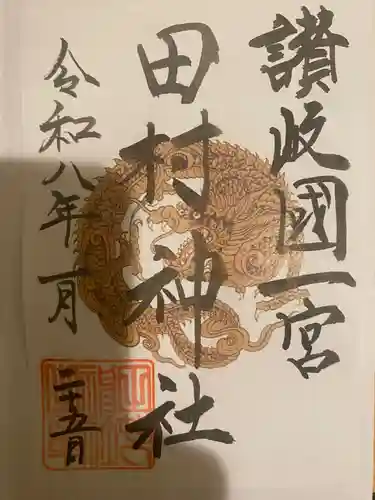 讃岐國一宮
田村神社
令和八年一月
二十五日